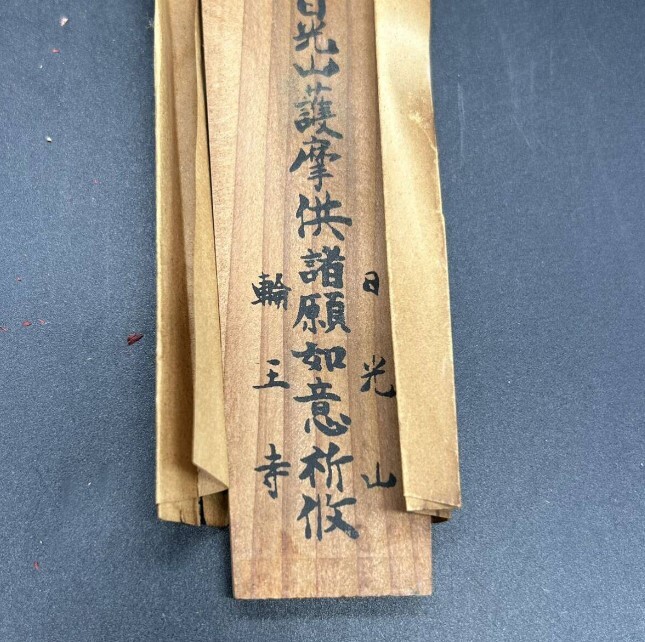 日光山
日光山護摩供諸願如意祈攸
輪王寺